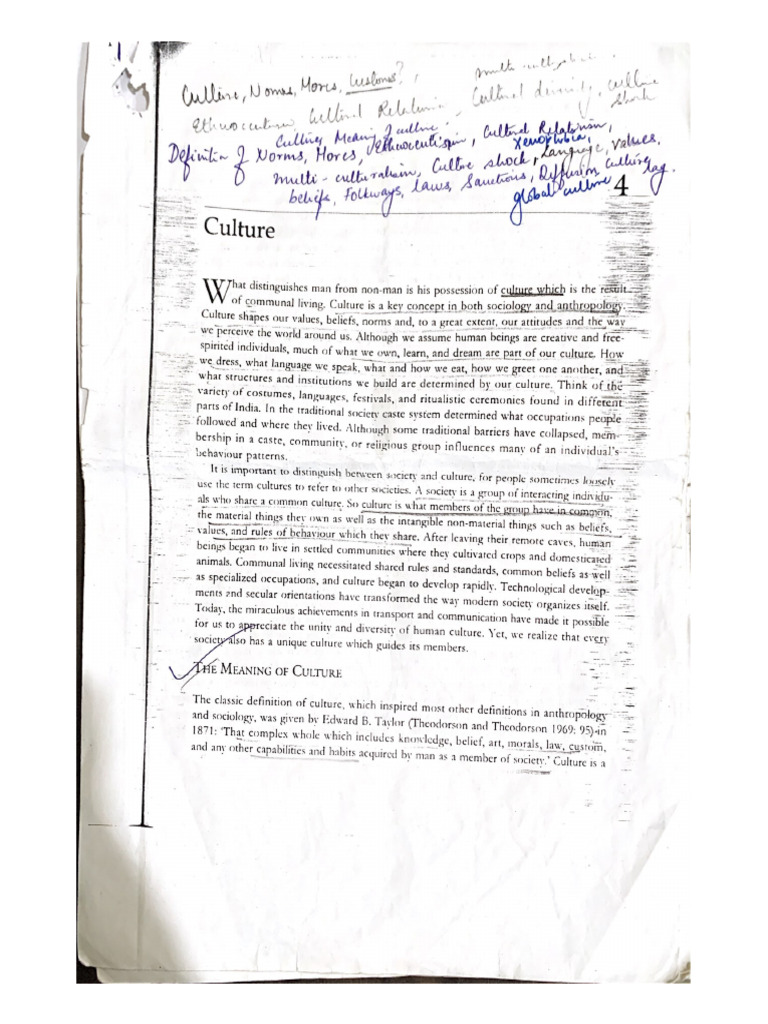 Culture, Norms, Mores, Customs?,
multi-culturalism
Ethnocentrism Cultural Relativism, Cultural diversity, culture
shock
Culture, Meaning of culture.
Definition of Norms, Mores, Ethnocentrism, Cultural Relativism,
Xenophobia,
multi-culturalism, Culture shock, Language, values,
beliefs, Folkways, laws, Sanctions, Diffusion, Culture lag.
global culture
4
Culture
What distinguishes man from non-man is his possession of culture which is the result
of communal living. Culture is a key concept in both sociology and anthropology.
Culture shapes our values, beliefs, norms and, to a great extent, our attitudes and the way
we perceive the world around us. Although we assume human beings are creative and free-
spirited individuals, much of what we own, learn, and dream are part of our culture. How
we dress, what language we speak, what and how we eat, how we greet one another, and
what structures and institutions we build are determined by our culture. Think of the
variety of costumes, languages, festivals, and ritualistic ceremonies found in different
parts of India. In the traditional society caste system determined what occupations people
followed and where they lived. Although some traditional barriers have collapsed, mem-
bership in a caste, community, or religious group influences many of an individual's
behaviour patterns.
It is important to distinguish between society and culture, for people sometimes loosely
use the term cultures to refer to other societies. A society is a group of interacting individu-
als who share a common culture. So culture is what members of the group have in common,
the material things they own as well as the intangible non-material things such as beliefs,
values, and rules of behaviour which they share. After leaving their remote caves, human
beings began to live in settled communities where they cultivated crops and domesticated
animals. Communal living necessitated shared rules and standards, common beliefs as well
as specialized occupations, and culture began to develop rapidly. Technological develop-
ments and secular orientations have transformed the way modern society organizes itself.
Today, the miraculous achievements in transport and communication have made it possible
for us to appreciate the unity and diversity of human culture. Yet, we realize that every
society also has a unique culture which guides its members.
THE MEANING OF CULTURE
The classic definition of culture, which inspired most other definitions in anthropology
and sociology, was given by Edward B. Taylor (Theodorson and Theodorson 1969: 95) in
1871: 'That complex whole which includes knowledge, belief, art, morals, law, custom,
and any other capabilities and habits acquired by man as a member of society.' Culture is a